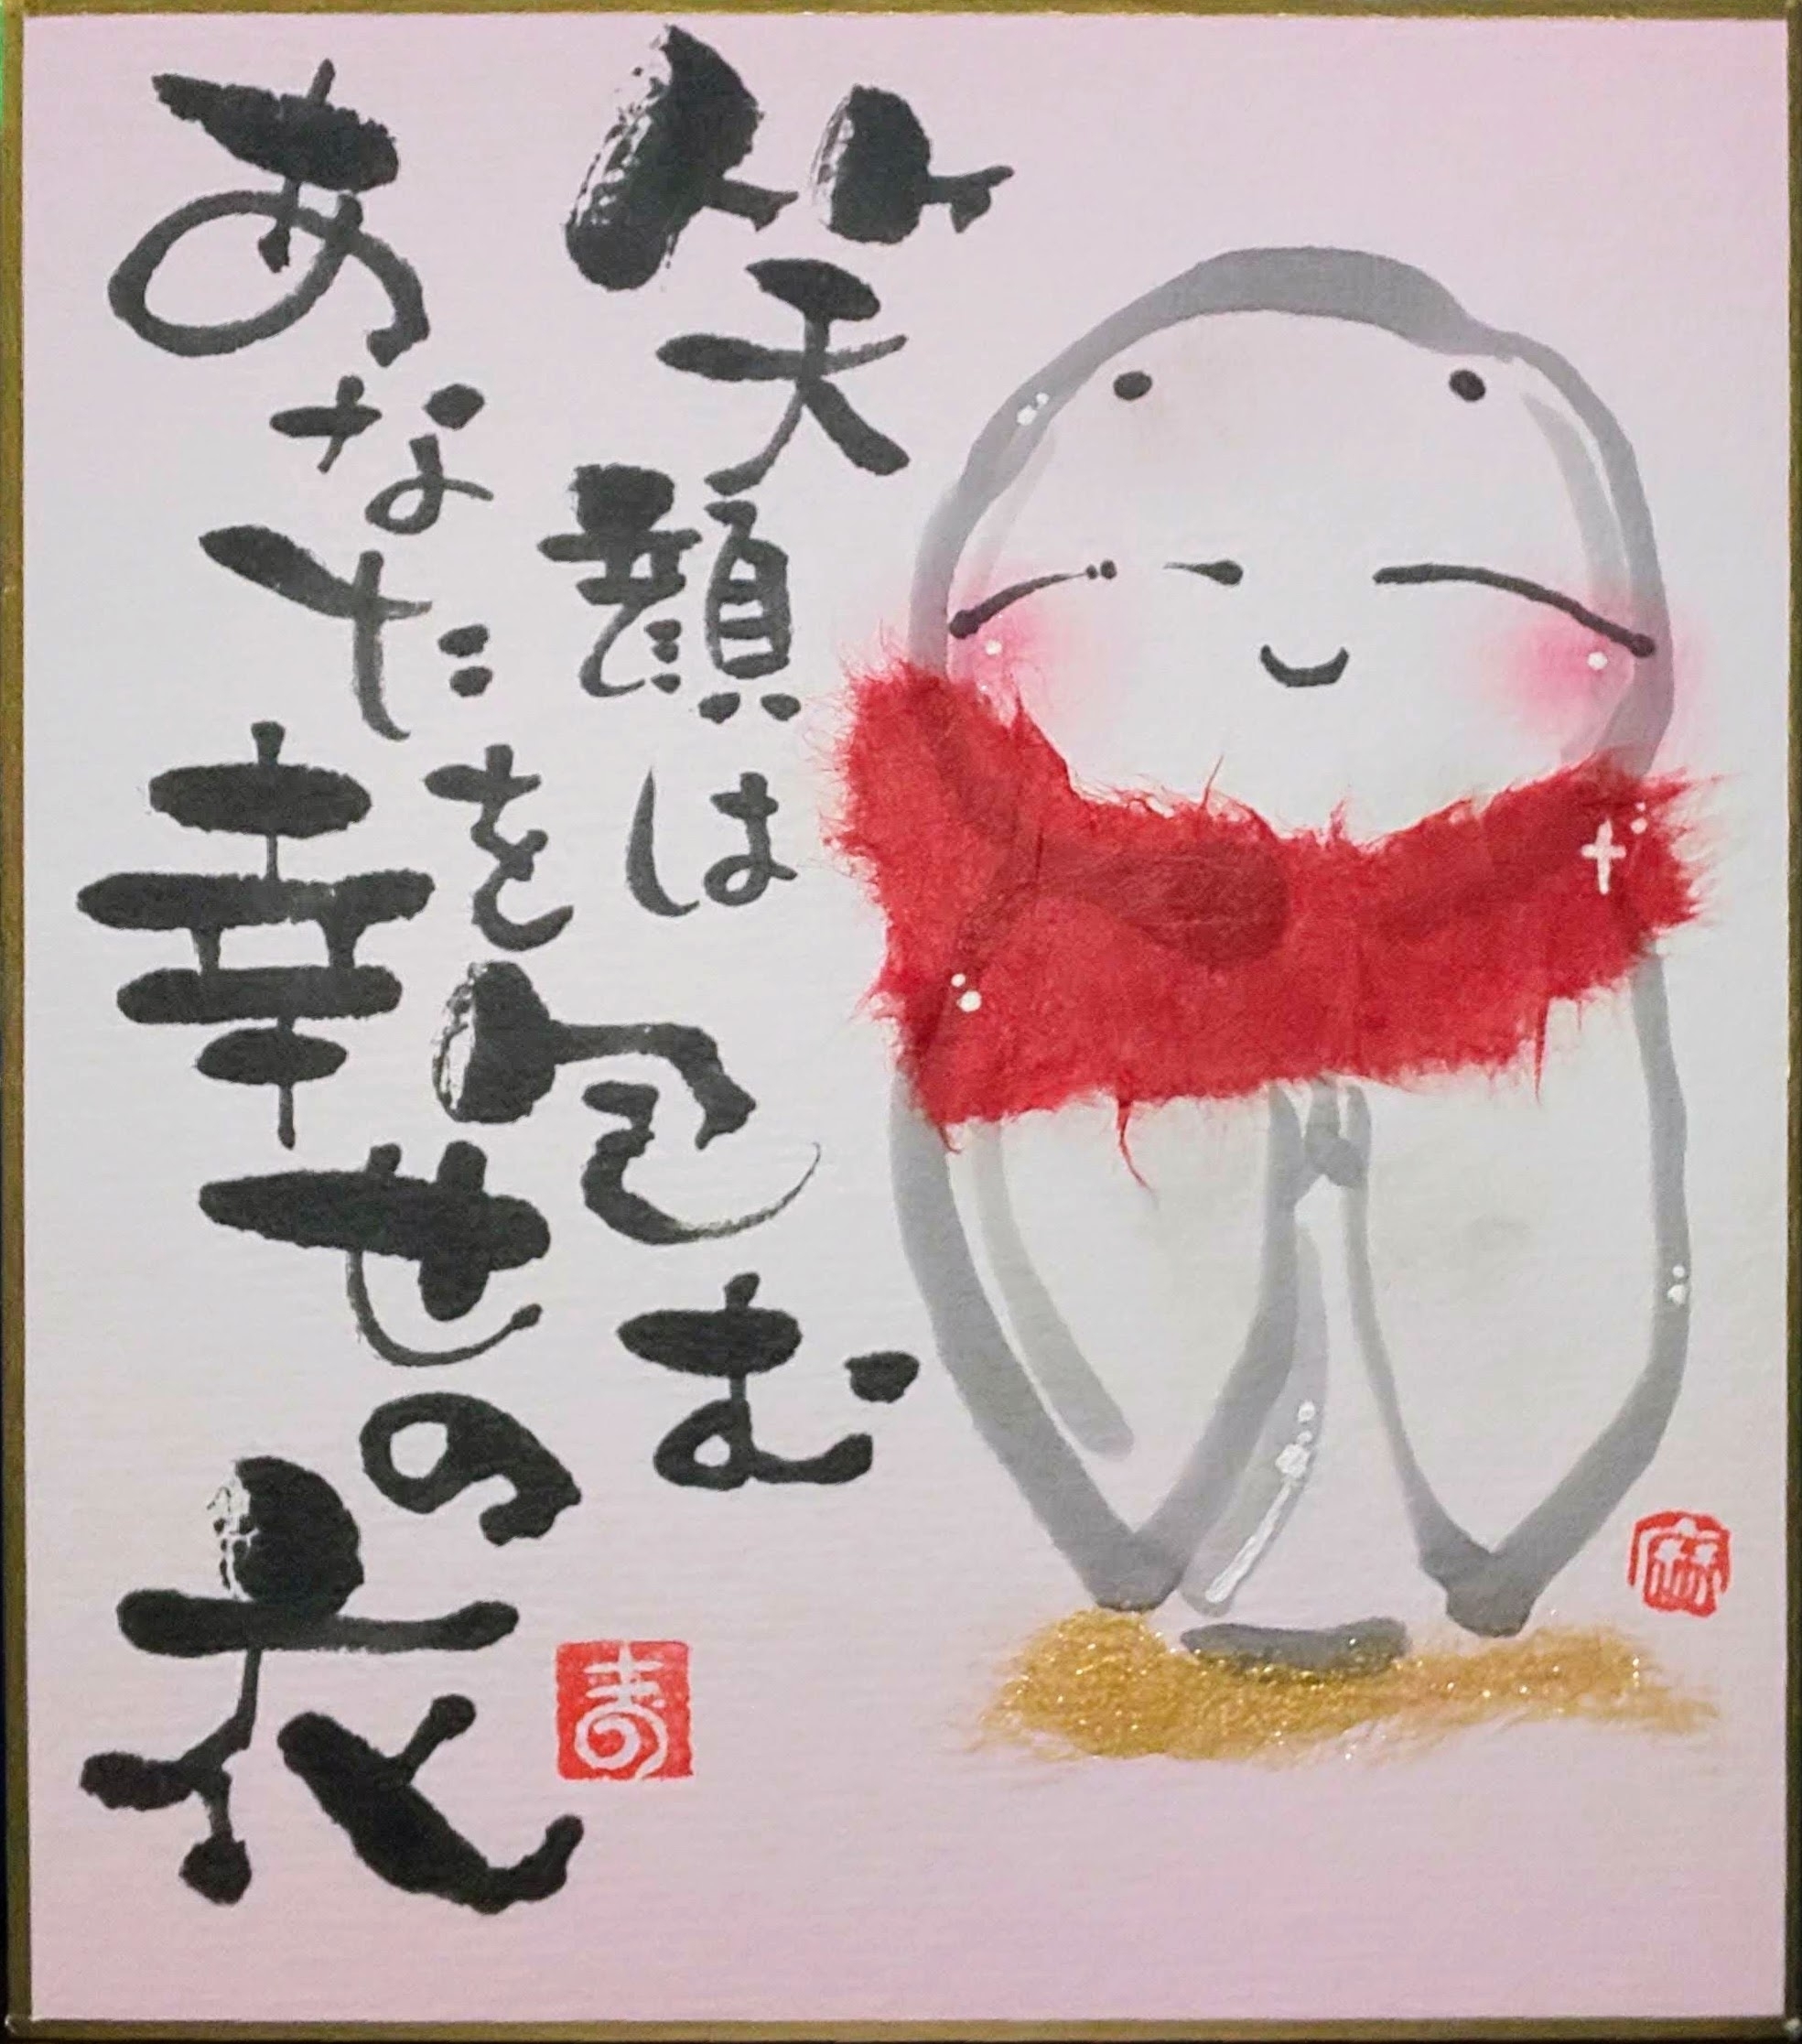 笑顔は
あなたを包む
幸せの衣
寿